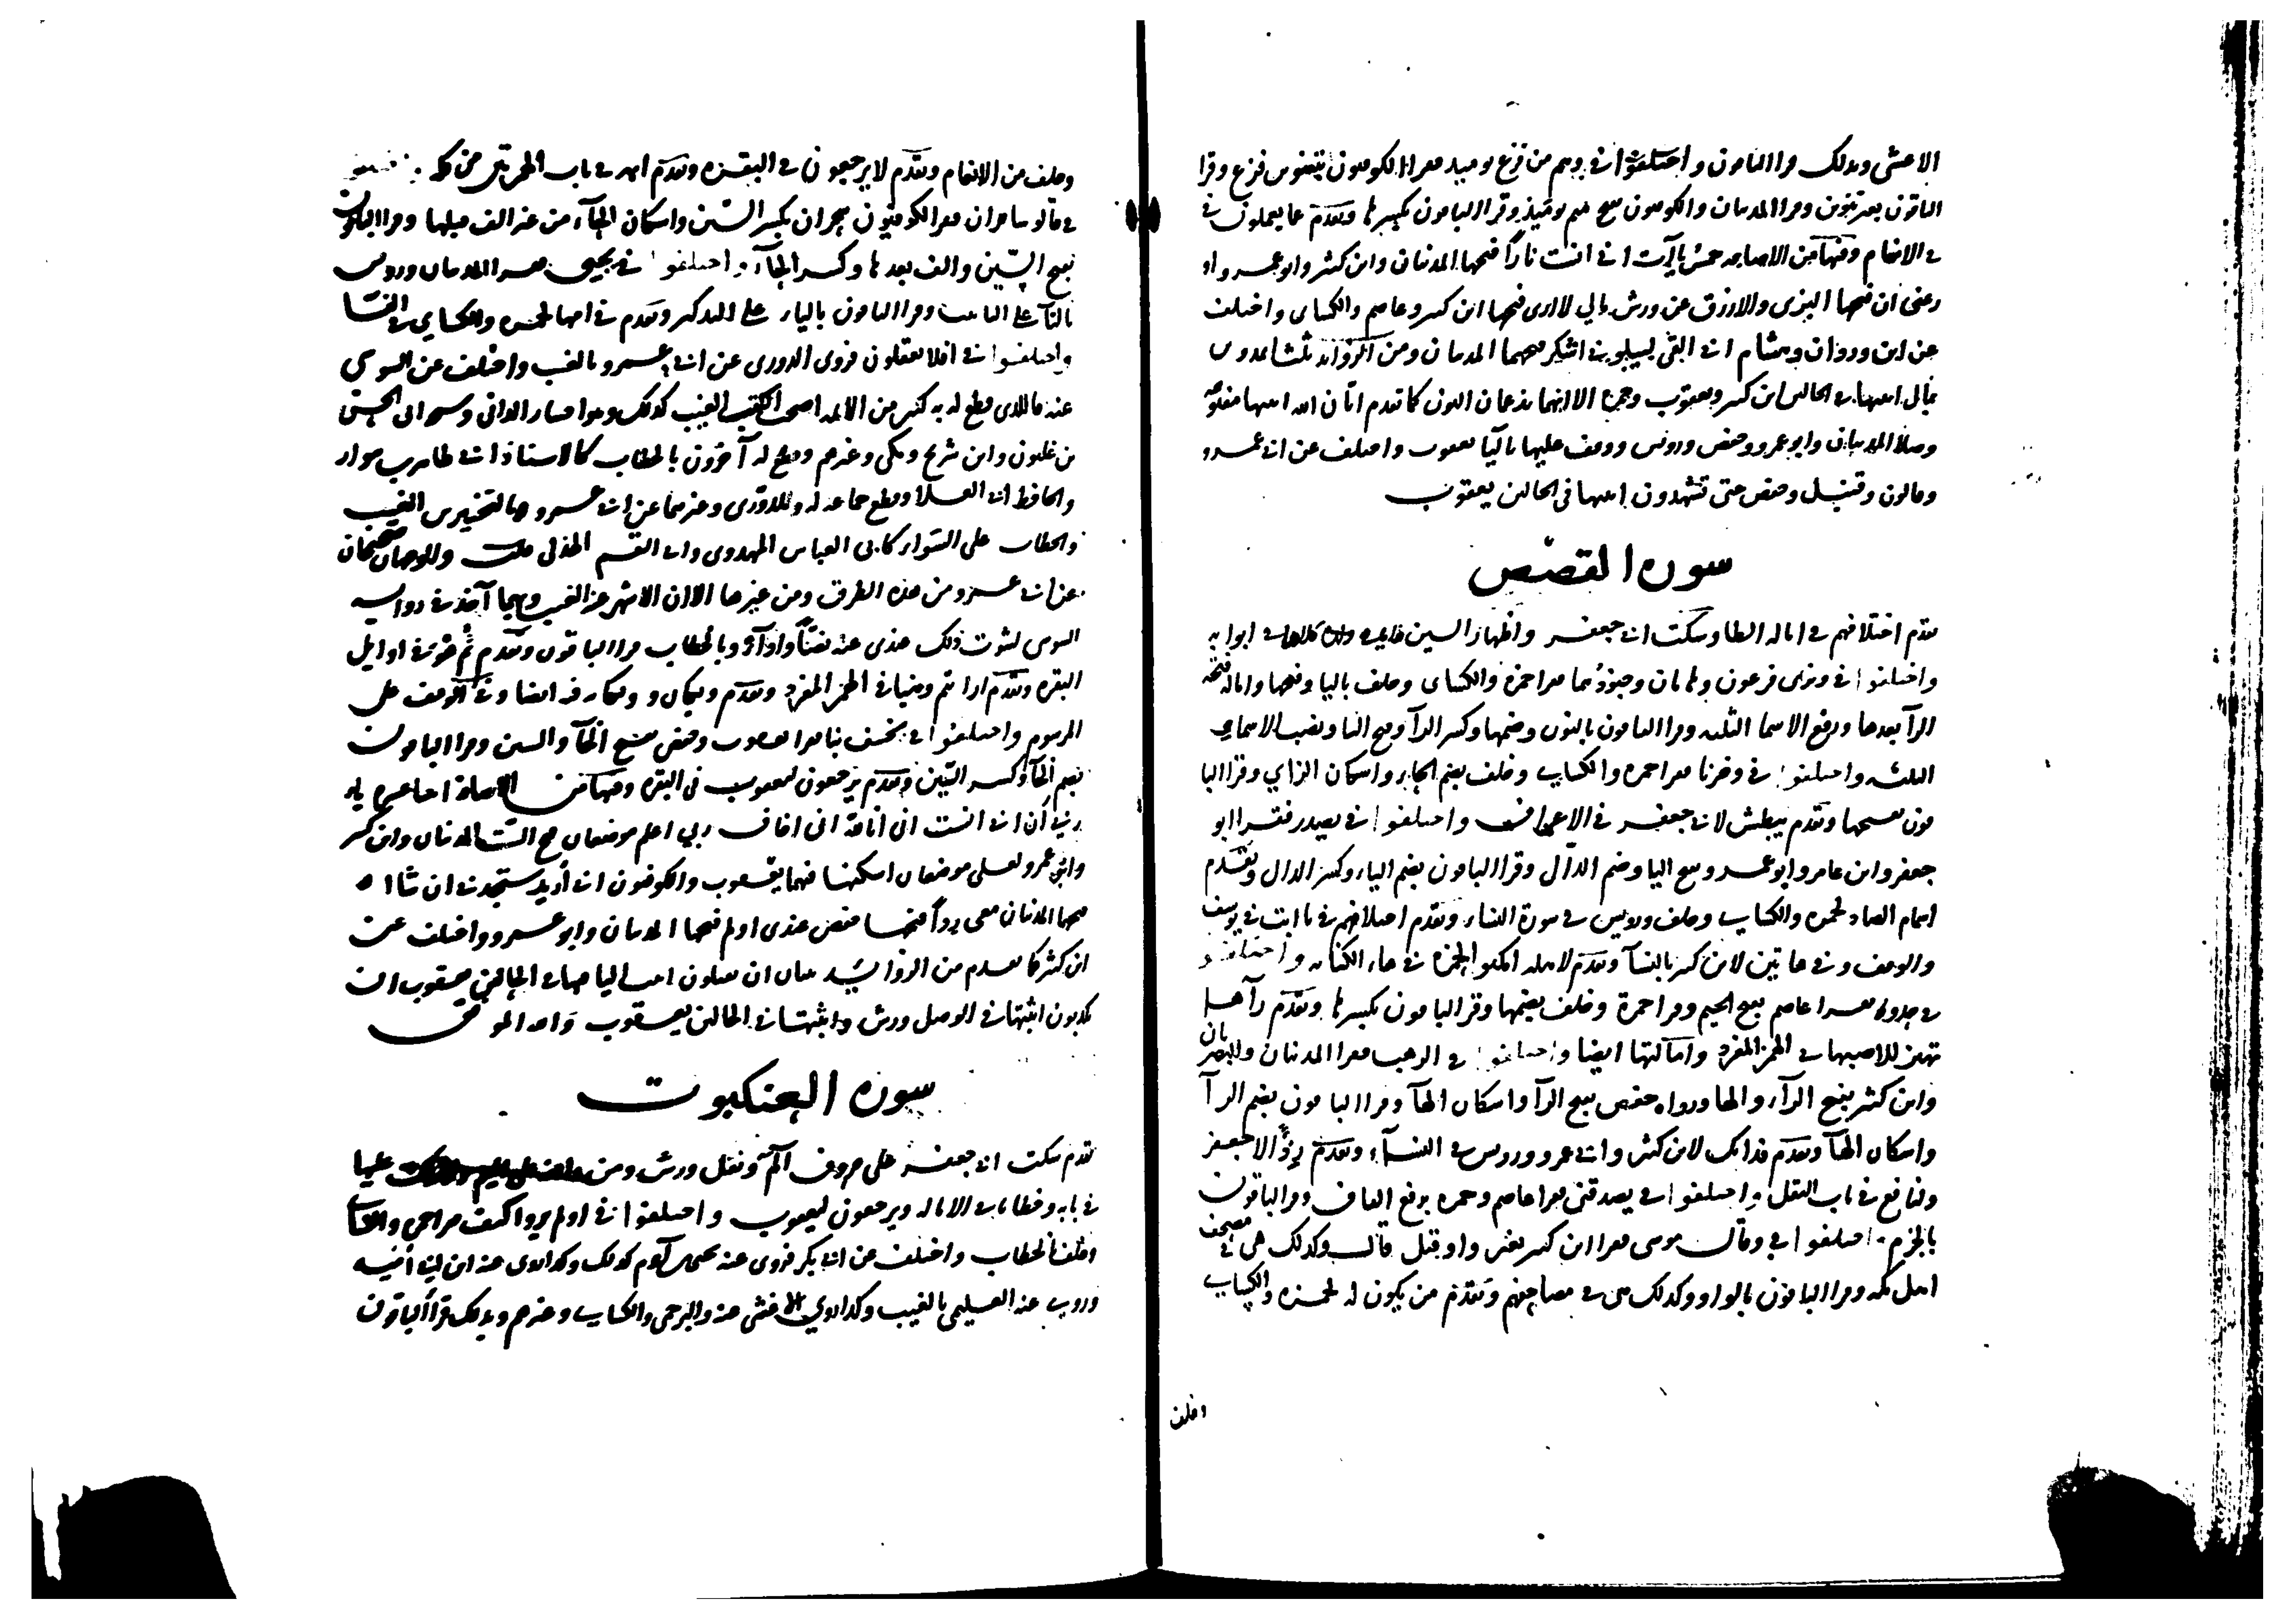 الاعشى وبذلك قرا الباقون واختلفوا في وهم من فزع يوميذ فقرا الكوفيون بتنوين فزع وقرا
الباقون بغير تنوين وقرا المدنيان والكوفيون بفتح ميم يوميذ وقرا الباقون بكسرها وتقدم عما يعملون في
في الانعام وفيها من الاضافه خمس ياآت اني انست نارا فتحها المدنيان وابن كثير وابو عمرو او
زعني ان فتحها البزي والازرق عن ورش مالي لا ارى فتحها ابن كثير وعاصم والكساي واختلف
عن ابن وردان وهشام اني القي ليبلوني اشكر فتحهما المدنيان ومن الزوائد ثلث تمدونن
بمال اثبتها في الحالين ابن كثير ويعقوب وحمزة الا انهما يدغمان النون كما تقدم اتان الله اثبتها مفتوحه
وصلا المدنيان وابو عمرو وحفص ورويس ووقف عليها باليا يعقوب واختلف عن ابي عمرو
وقالون وقنبل وحفص حتى تشهدون اثبتها في الحالين يعقوب
سورة القصص
تقدم اختلافهم في اماله الطا وسكت ابي جعفر واظهار السين في ابوابه
واختلفوا في ونرى فرعون وهامان وجنودهما فقرا حمزة والكساي وخلف باليا وفتحها واماله فتحة
الرا بعدها ورفع الاسما الثلثه وقرا الباقون بالنون وضمها وكسر الرا وفتح اليا ونصب الاسماء
الثلثه واختلفوا في وحزنا فقرا حمزه والكساي وخلف بضم الحاء واسكان الزاي وقرا البا
قون بفتحها وتقدم يبطش لابي جعفر في الاعراف واختلفوا في يصدر فقرا ابو
جعفر وابن عامر وابو عمرو بفتح اليا وضم الدال وقرا الباقون بضم الياء وكسر الدال وتقدم
اشمام الصاد لحمزه والكساي وخلف ورويس في سورة النساء وتقدم اختلافهم في يا ابت في يوسف
والوقف وفي هاتين لابن كثير بالنسآ وتقدم لاهله امكثوا لحمزة في هاء الكنايه واختلفوا
في جذوة فقرا عاصم بفتح الجيم وقرا حمزة وخلف بضمها وقرا الباقون بكسرها وتقدم رآها
تهتز للاصبهاني في الهمز المفرد وامالتها ايضا واختلفوا في الرهب فقرا المدنيان والبصريان
وابن كثير بفتح الراء والها ورواه حفص بفتح الرا واسكان الها وقرا الباقون بضم الرآ
واسكان الها وتقدم فذانك لابن كثير وابي عمرو ورويس في النسآء وتقدم ردءا لابي جعفر
ولنافع في باب النقل واختلفوا في يصدقني فقرا عاصم وحمزه برفع القاف وقرا الباقون
بالجزم واختلفوا في وقال موسى فقرا ابن كثير بغير واو قبل قال وكذلك هي في مصحف
اهل مكه وقرا الباقون بالواو وكذلك هي في مصاحفهم وتقدم من يكون له لحمزه والكساي
وخلف
وخلف من الانعام وتقدم لا يرجعون في البقره وتقدم ايمه في باب الهمزتين من كلمه واختلفوا
في قالوا ساحران فقرا الكوفيون سحران بكسر السين واسكان الحآء من غير الف قبلها وقرا الباقون
بفتح السين والف بعدها وكسر الحآء واختلفوا في يجبى فقرا المدنيان ورويس
بالتآ على التانيث وقرا الباقون بالياء على التذكير وتقدم في امها لحمزه والكساي في النسا
واختلفوا في افلا تعقلون فروى الدوري عن ابي عمرو بالغيب واختلف عن السوسي
عنه فالذي قطع له به كثير من الائمه اصحاب الكتب الغيب كذلك وهو اختيار الداني وشيخه ابي الحسن
بن غلبون وابن شريح ومكي وغيرهم وقطع له آخرون بالخطاب كالاستاذ ابي طاهر بن سوار
والحافظ ابي العلا وقطع جماعه له وللدوري وغيرهما عن ابي عمرو بالتخيير بين الغيب
والخطاب على السواء كابي العباس المهدوي وابي القسم الهذلي قلت والوجهان صحيحان
عن ابي عمرو من هذه الطرق ومن غيرها الا ان الاشهر عنه الغيب وبهما آخذ في روايه
السوسي لثبوت ذلك عندي عنه نصا واداء وبالخطاب قرا الباقون وتقدم ثم هو في اوايل
البقره وتقدم ارايتم وضياء في الهمز المفرد وتقدم ويكان وويكانه ايضا في الوقف على
المرسوم واختلفوا في لخسف بنا فقرا يعقوب وحفص بفتح الخآ والسين وقرا الباقون
بضم الخآ وكسر السين وتقدم يرجعون ليعقوب في البقره وفيها من الاضافة اثنا عشره ياء
ربي ان اني انست اني انا الله اني اخاف ربي اعلم موضعان فتح الست المدنيان وابن كثير
وابو عمرو لعلي موضعان اسكنها فيهما يعقوب والكوفيون اني اريد ستجدني ان شاء الله
فتحهما المدنيان معي ردا فتحها حفص عندي اولم فتحها المدنيان وابو عمرو واختلف عن
ابن كثير كما تقدم ومن الزوائد ثنتان ان يقتلون اثبت الياء فيها في الحالين يعقوب ان
يكذبون اثبتها في الوصل ورش واثبتها في الحالين يعقوب والله الموفق
سورة العنكبوت
تقدم سكت ابي جعفر على حروف الم ونقل ورش ومن عليها
في بابه وخطايا في الاماله ويرجعون ليعقوب واختلفوا في اولم يروا كيف فقرا حمزه والكساي
وخلف بالخطاب واختلف عن ابي بكر فروى عنه يحيى بن آدم كذلك وكذا روى عنه ابن ابي اميه
وروى عنه العليمي بالغيب وكذا روى الاعشى عنه والبرجمي والكساي وغيرهم وبذلك قرا الباقون